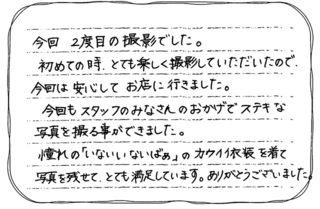 今回 2度目の撮影でした。
初めての時、とても楽しく撮影していただいたので、
今回は安心して お店に行きました。
今回も スタッフのみなさんのおかげで ステキな
写真を撮る事ができました。
憧れの「いないいないばぁ」の カワイイ衣装を着て
写真を残せて、とても満足しています。ありがとうございました。